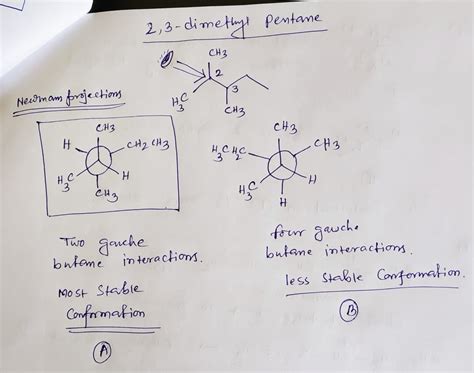 2,3-dimethyl Pentane
CH3
2
3
H3C
CH3
Newman projections
CH3
H
CH2CH3
H3C
H
CH3
CH3
H3C H2C
CH3
H3C
H
H
Two gauche
butane interactions.
Most Stable
Conformation
A
four gauche
butane interactions.
less Stable Conformation.
B